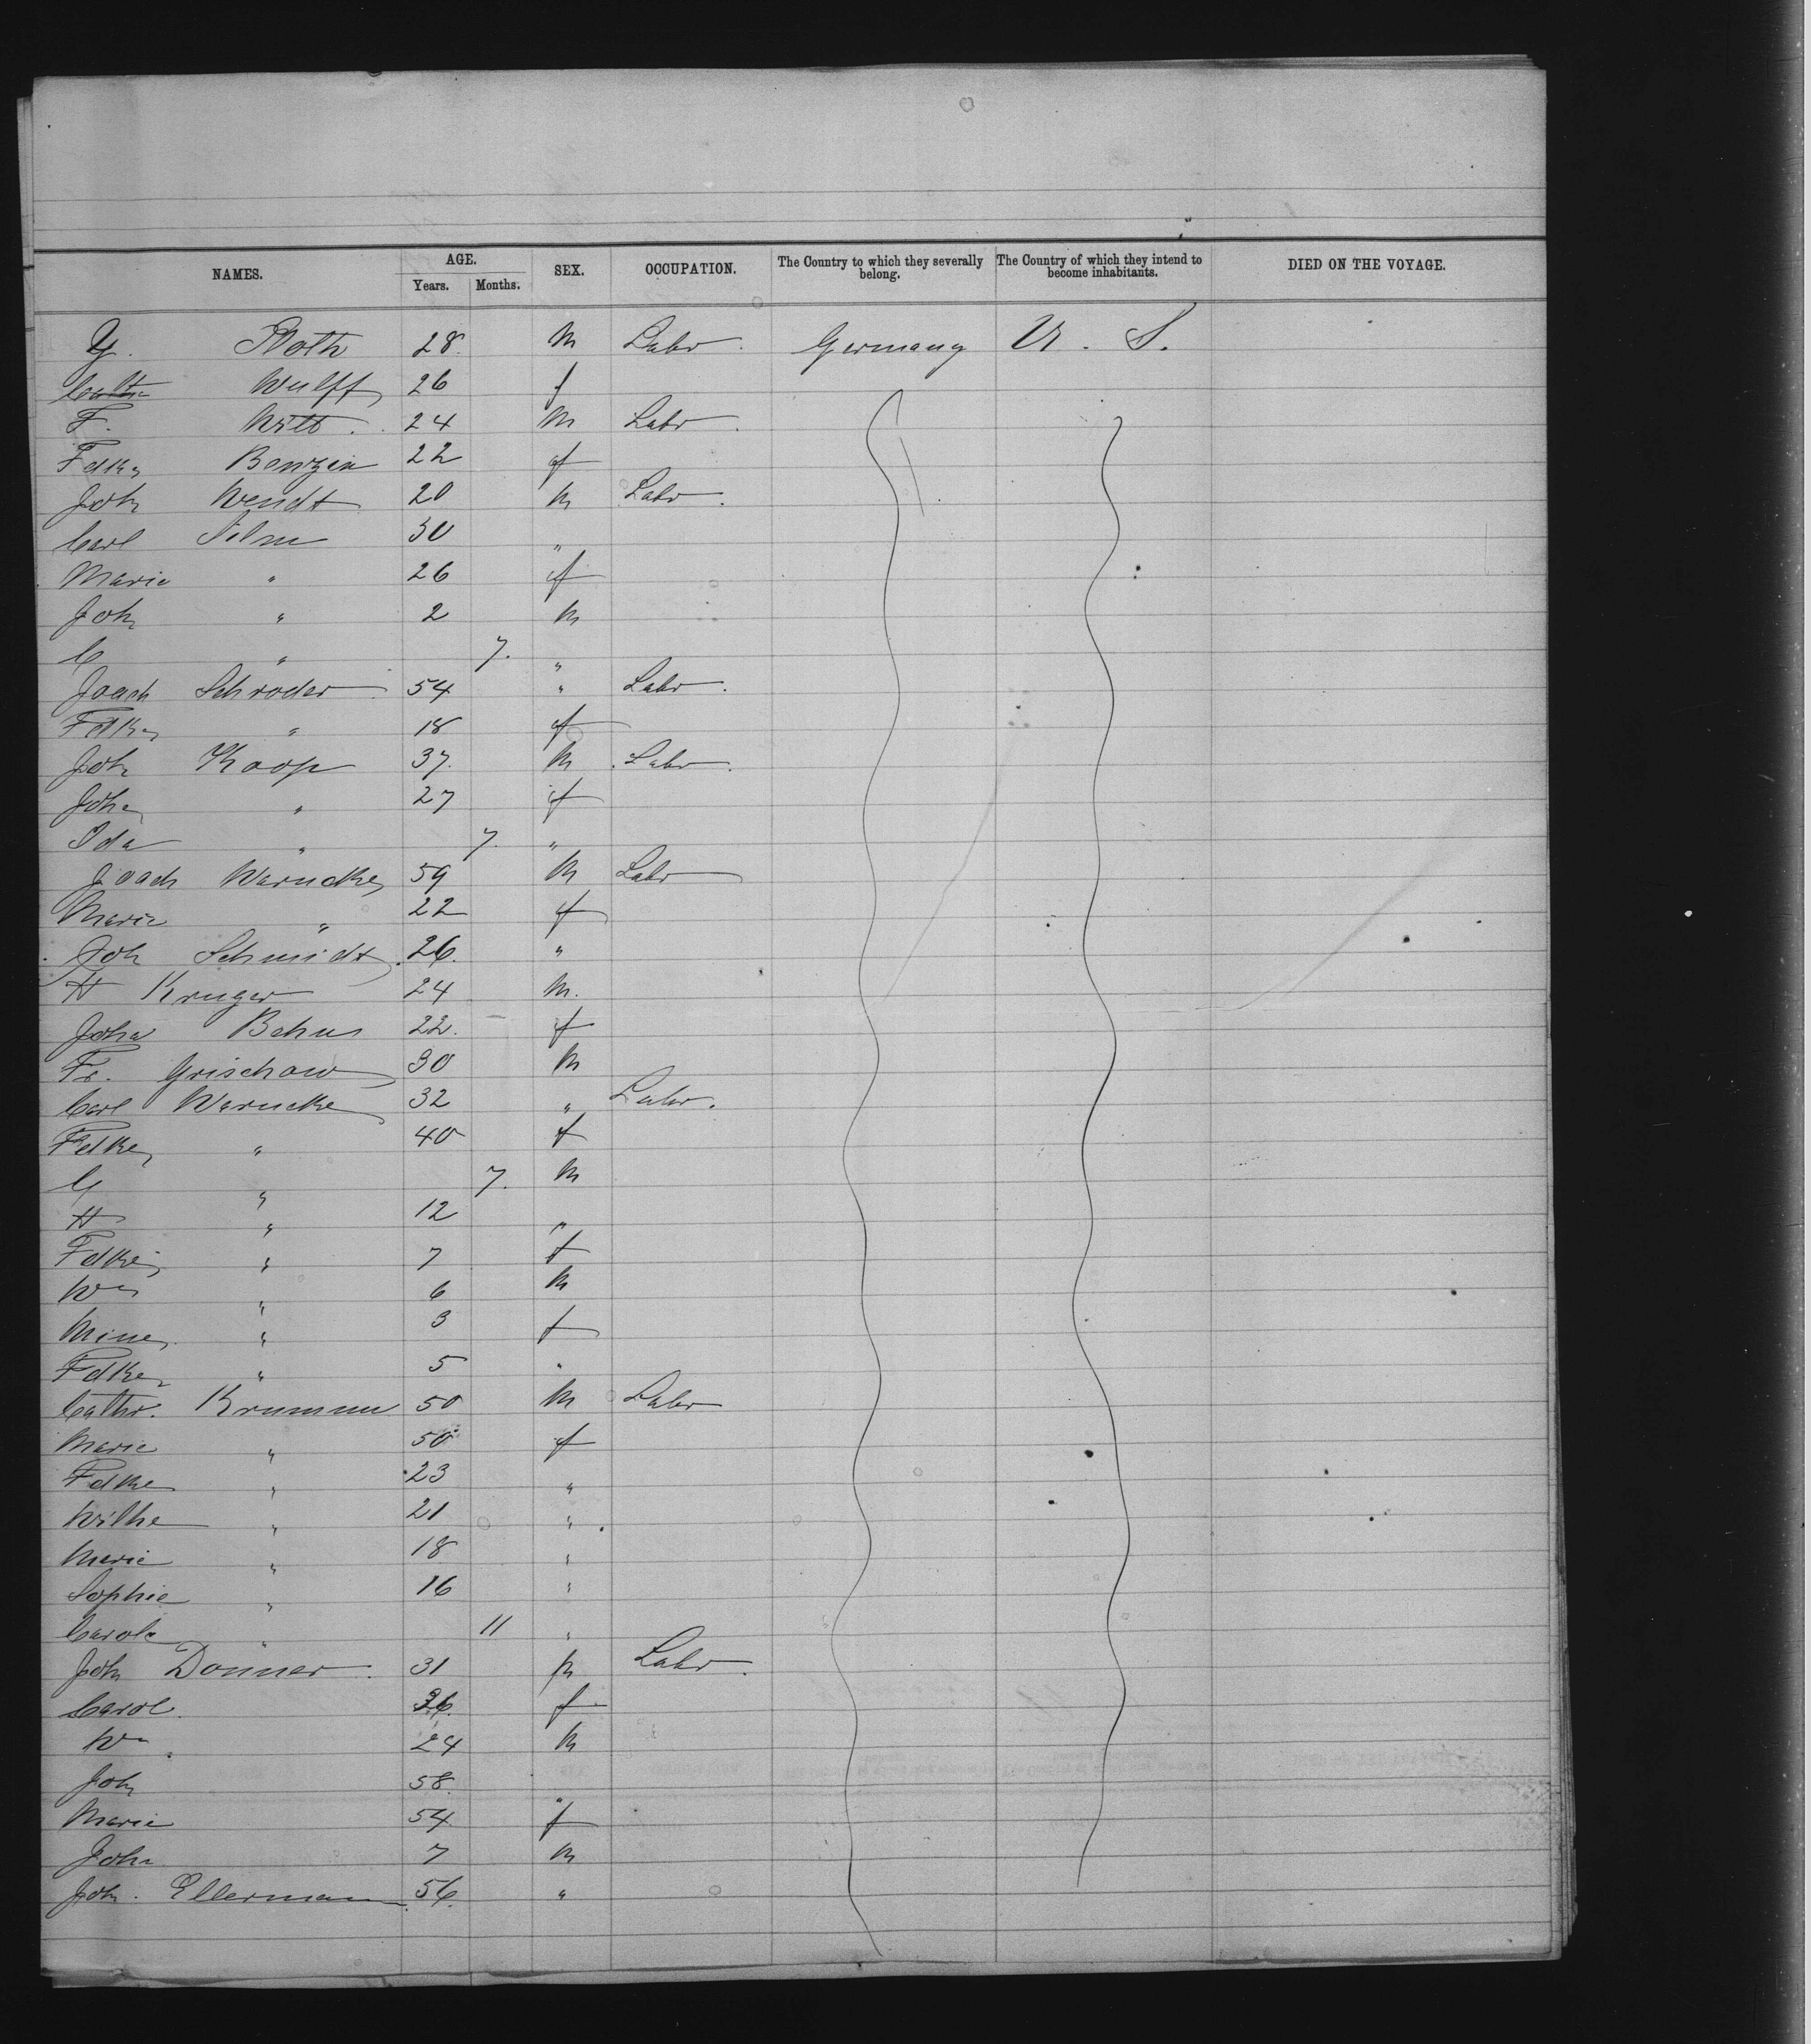 NAMES. AGE. SEX. OCCUPATION. The Country to which they severally belong. The Country of which they intend to become inhabitants. DIED ON THE VOYAGE.
Years. Months.
Y. Roth 28 M Labr. Germany U. S.
Cath Wulff 26 f
F. Witt 24 M Labr.
Fdke Benzin 22 f
Joh Wendt 20 M Labr.
Carl 30 "
Marie " 26 f
Joh " 2 M
C " 7. "
Joach Schroder 54 " Labr.
Fdke " 18 f
Joh Koop 37. M Labr.
Joha " 27 f
Ida " 7. "
Joach Warncke 59 M Labr
Marie " 22 f
Joh Schmidt 26. "
H Kruger 24 M.
Joha Behns 22. f
Fr. Grischow 30 M
Carl Warncke 32 " Labr.
Fdke " 40 f
" 7. M
H " 12 "
Fdke " 7 f
Wm " 6 M
Mine " 3 f
Fdke " 5 "
Cathr. Krumm 50 M Labr
Marie " 50 f
Fdke " 23 "
Wilhe " 21 "
Marie " 18 "
Sophie " 16 "
Carole " 11 "
Joh Donner 31 M Labr.
Carol. 26 f
Wm 24 M
Joh 58 "
Marie 54 f
Joh. 7 M
Joh. Ellerman 56. "